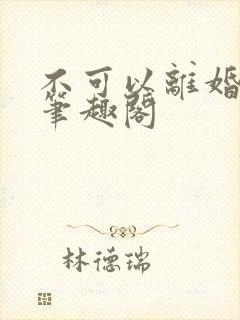 不可以離婚
筆趣閣
林德瑞